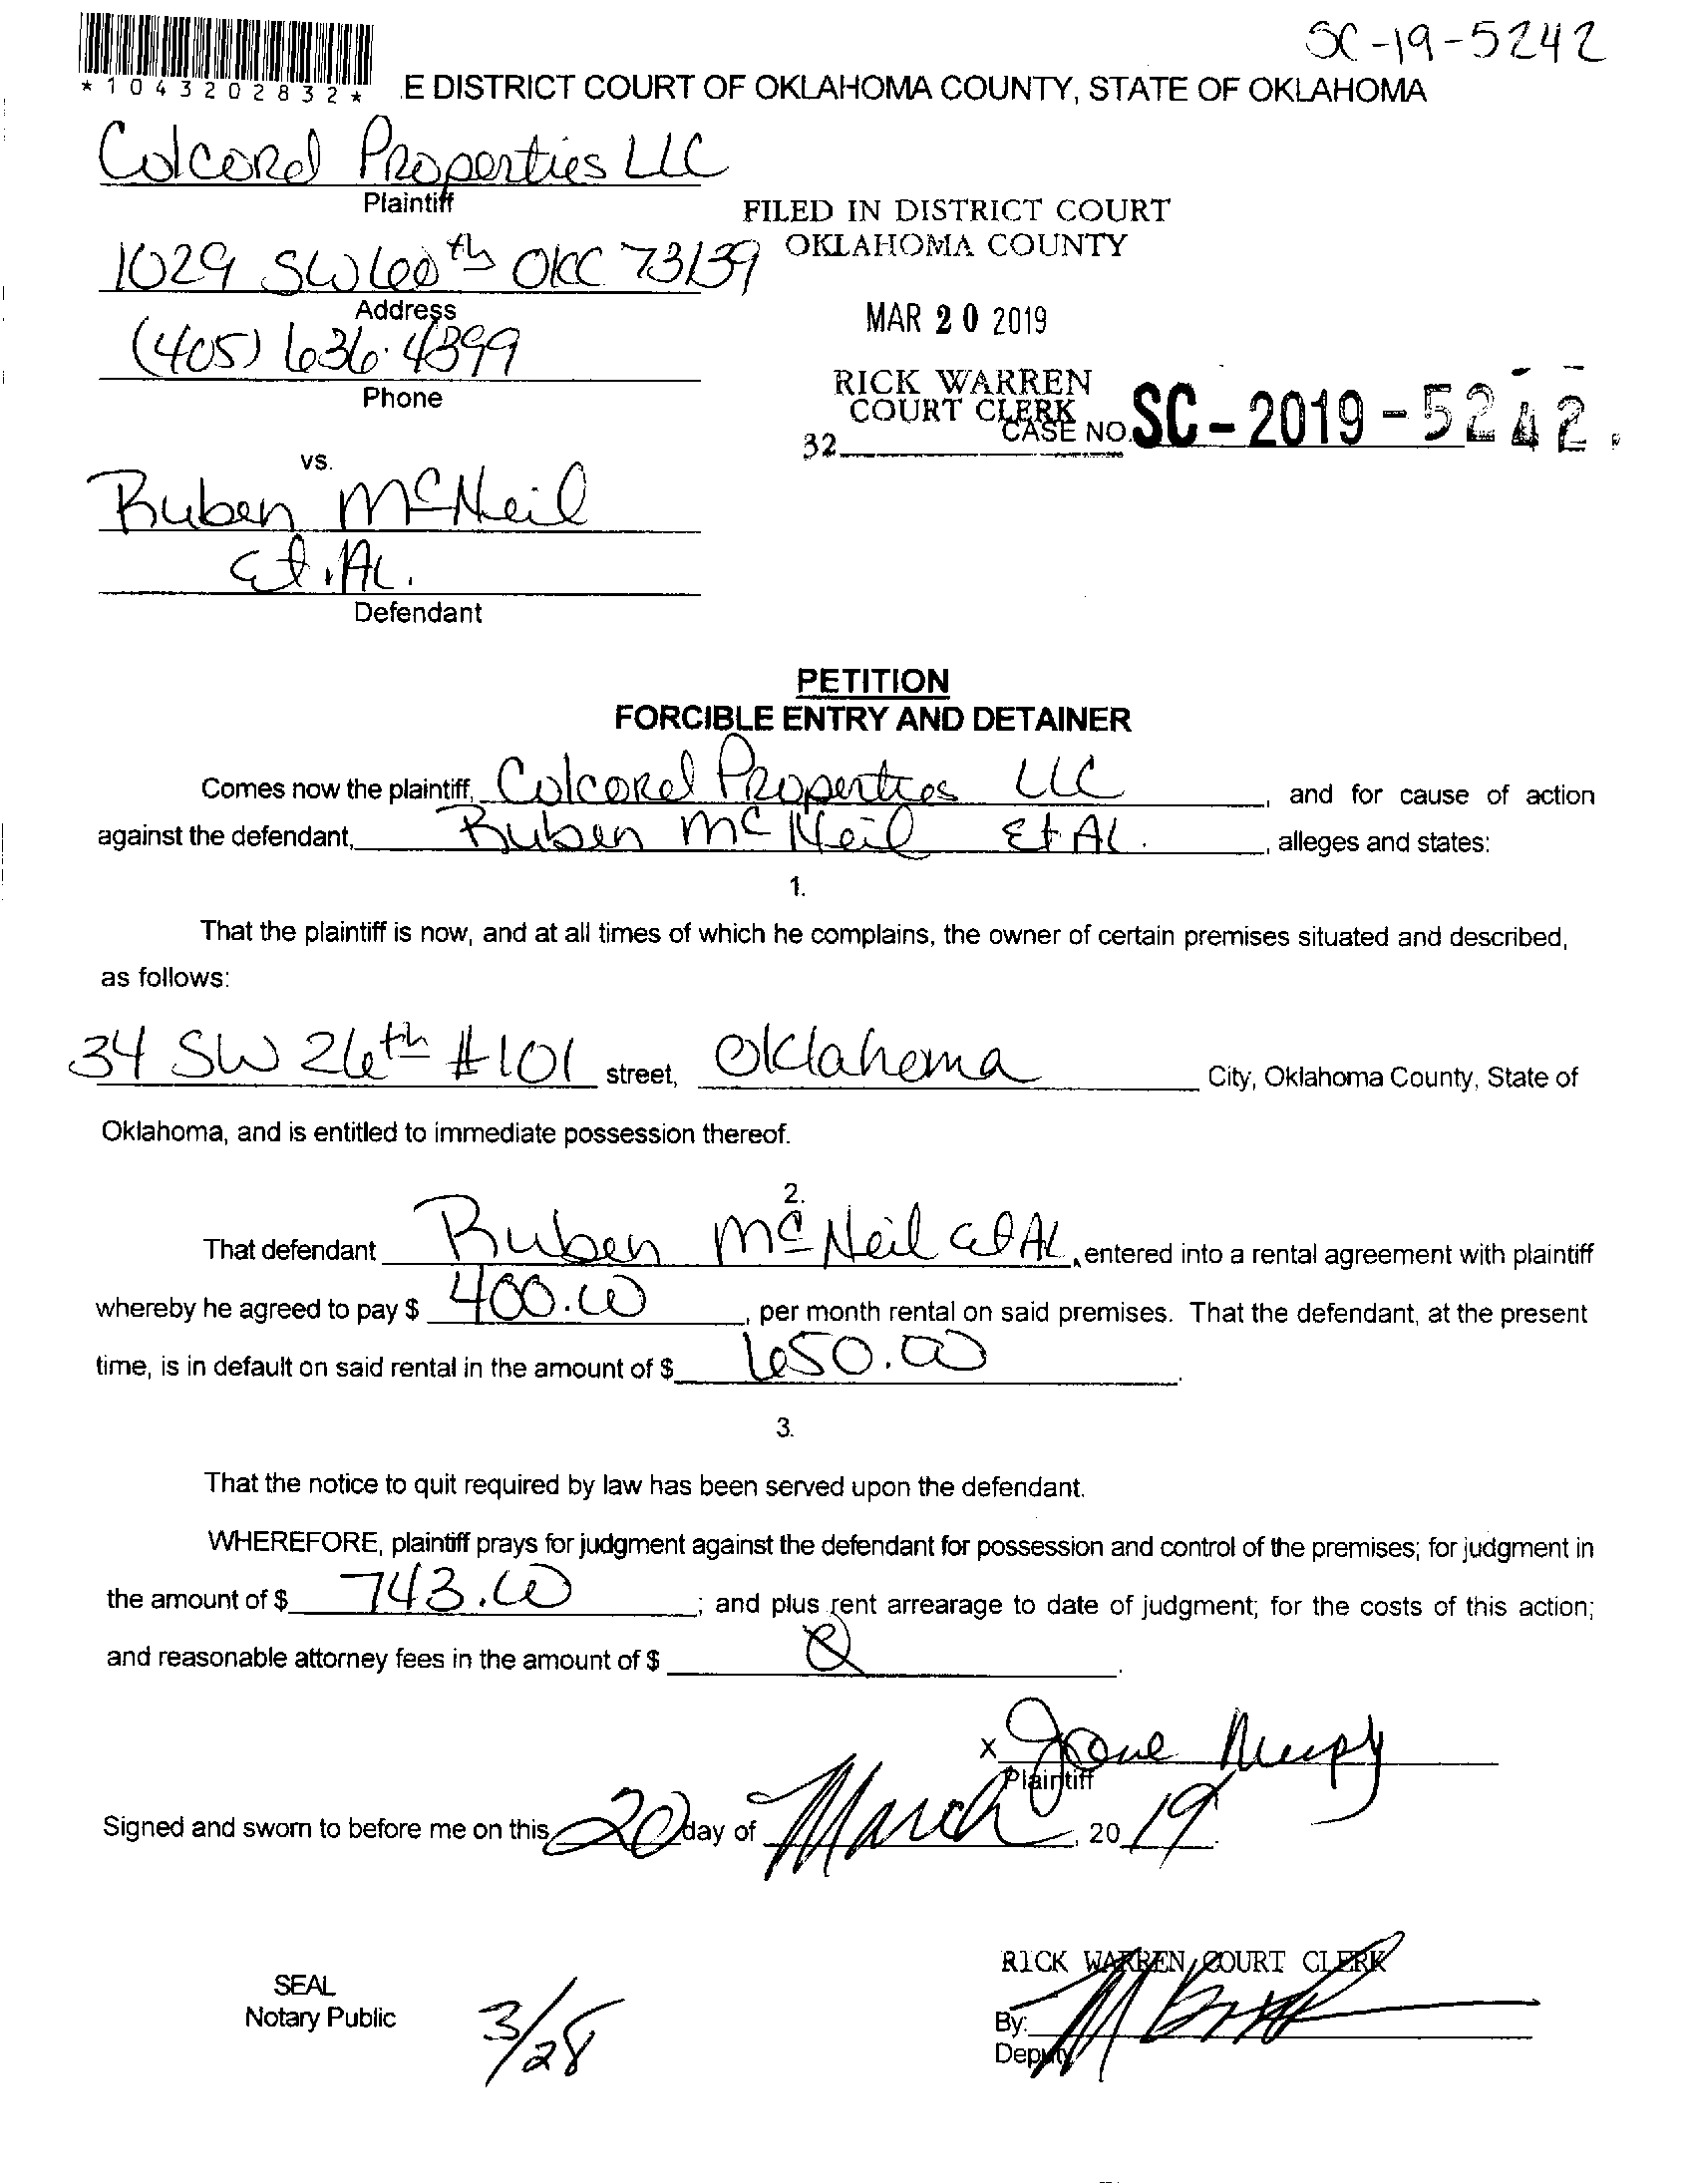 SC-19-5242
*1043202832* E DISTRICT COURT OF OKLAHOMA COUNTY, STATE OF OKLAHOMA
Colcord Properties LLC
Plaintiff
FILED IN DISTRICT COURT
OKLAHOMA COUNTY
1029 SW 60th OKC 73139
Address
MAR 20 2019
(405) 636-4399
Phone
RICK WARREN
COURT CLERK
32
CASE NO. SC-2019-5242
vs.
Ruben McNeil
Et. Al.
Defendant
PETITION
FORCIBLE ENTRY AND DETAINER
Comes now the plaintiff, Colcord Properties LLC, and for cause of action
against the defendant, Ruben McNeil Et AL., alleges and states:
1.
That the plaintiff is now, and at all times of which he complains, the owner of certain premises situated and described,
as follows:
34 SW 26th #101 street, Oklahoma City, Oklahoma County, State of
Oklahoma, and is entitled to immediate possession thereof.
2.
That defendant Ruben McNeil et AL, entered into a rental agreement with plaintiff
whereby he agreed to pay $ 400.00, per month rental on said premises. That the defendant, at the present
time, is in default on said rental in the amount of $ 650.00.
3.
That the notice to quit required by law has been served upon the defendant.
WHEREFORE, plaintiff prays for judgment against the defendant for possession and control of the premises; for judgment in
the amount of $ 743.00; and plus rent arrearage to date of judgment; for the costs of this action;
and reasonable attorney fees in the amount of $
x
Plaintiff
Signed and sworn to before me on this 20 day of March, 20 19.
RICK WARREN, COURT CLERK
SEAL
Notary Public
3/28
By:
Deputy